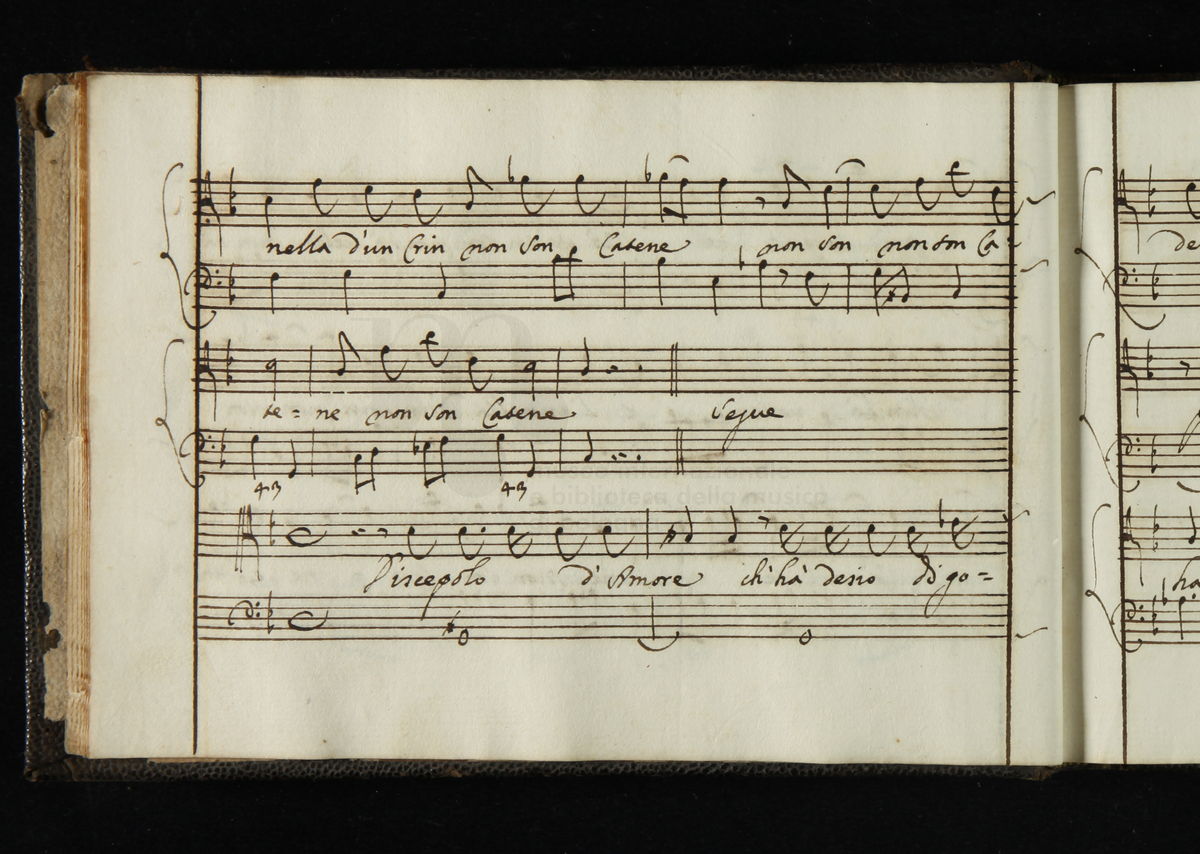 nella d'un Crin non son Catene non son non son Ca=
te= ne non son Catene segue
43 43
Discepolo d'Amore ch'hà desio di go=
de
ha
museo internazionale
e biblioteca della musica